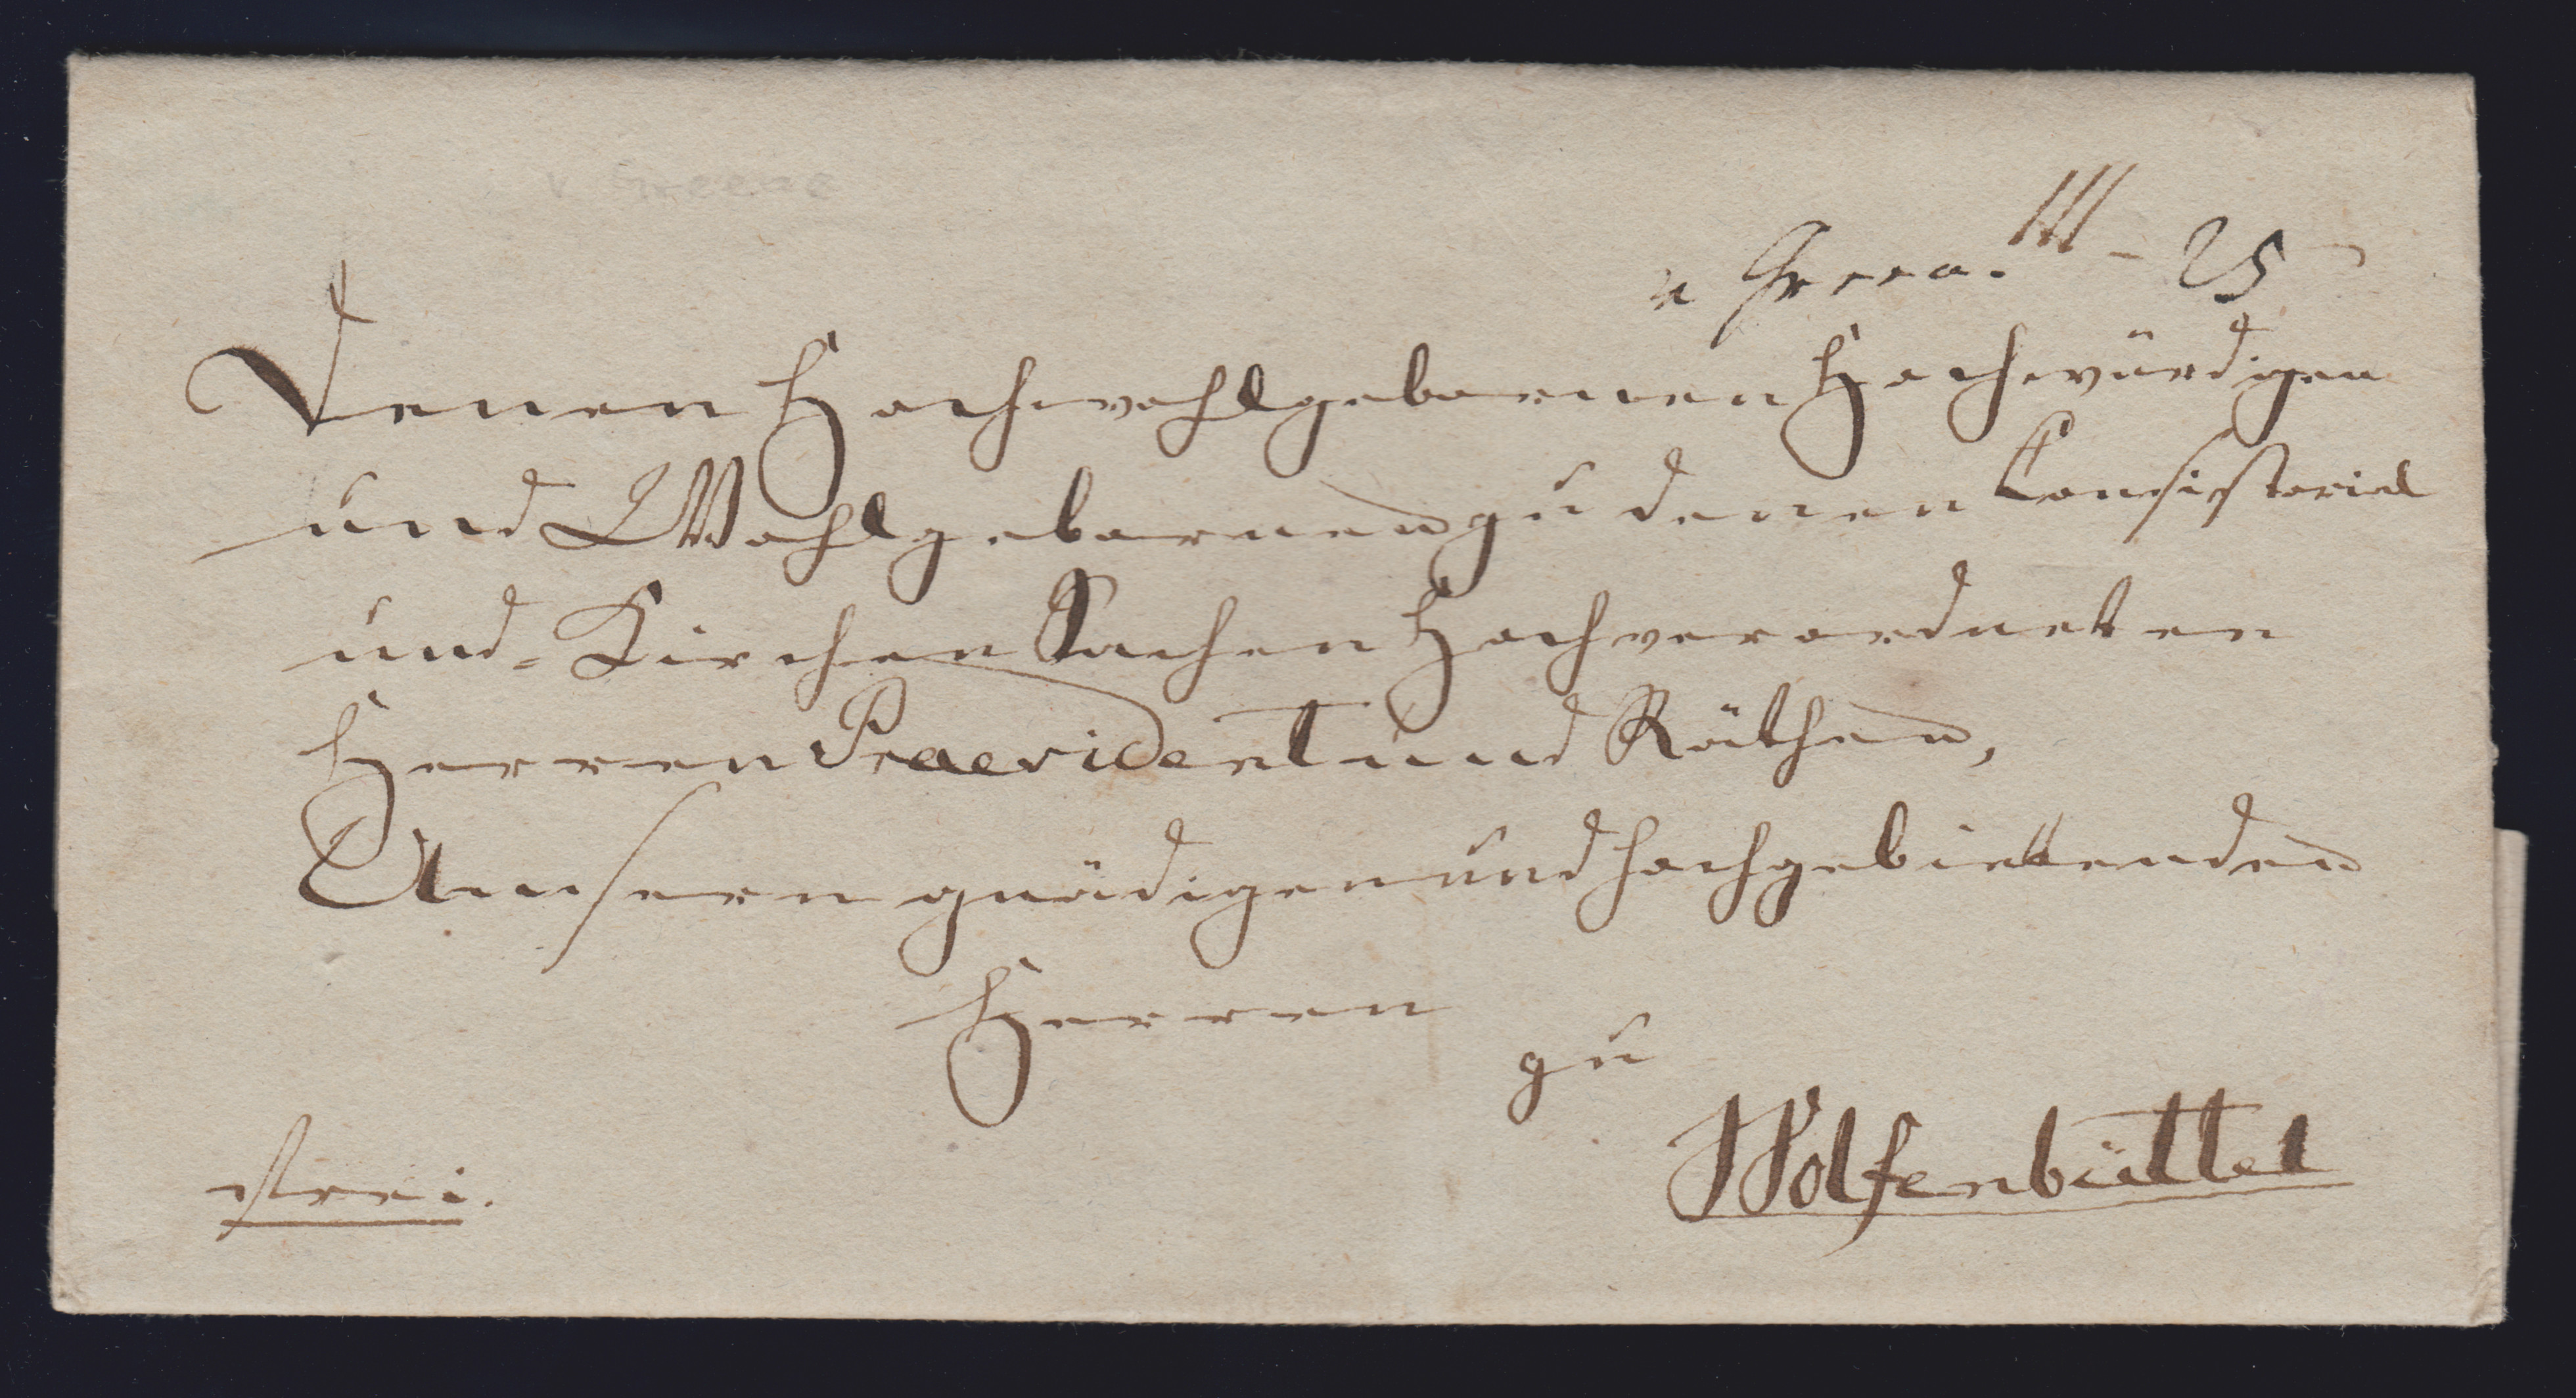 v Greene
v Greene. III - 25
Denen Hochwohlgebornen Hochwürdigen
und Wohlgebornen zu denen Consistorial
und-Kirchen Sachen Hochverordneten
Herren Praesident und Räthen,
Unsern gnädigen und hochgebiettenden
Herren
zu
Wolfenbüttel
frei.